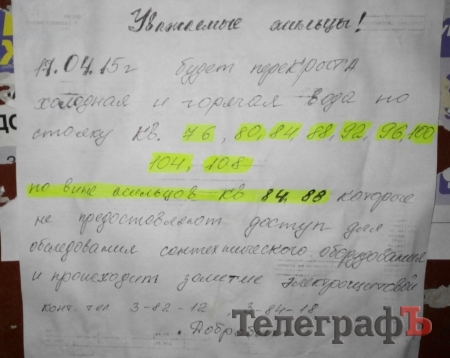 Уважаемые жильцы!
17.04.15г будет перекрота
холодная и горячая вода по
стояку кв. 76, 80, 84, 88, 92, 96, 100
104, 108
по вине жильцов кв 84, 88 которые
не предоставляют доступ для
обследования сантехнического оборудования
и происходит залитие электрощитовой
конт. тел 3-82-12 3-84-18
ТелеграфЪ